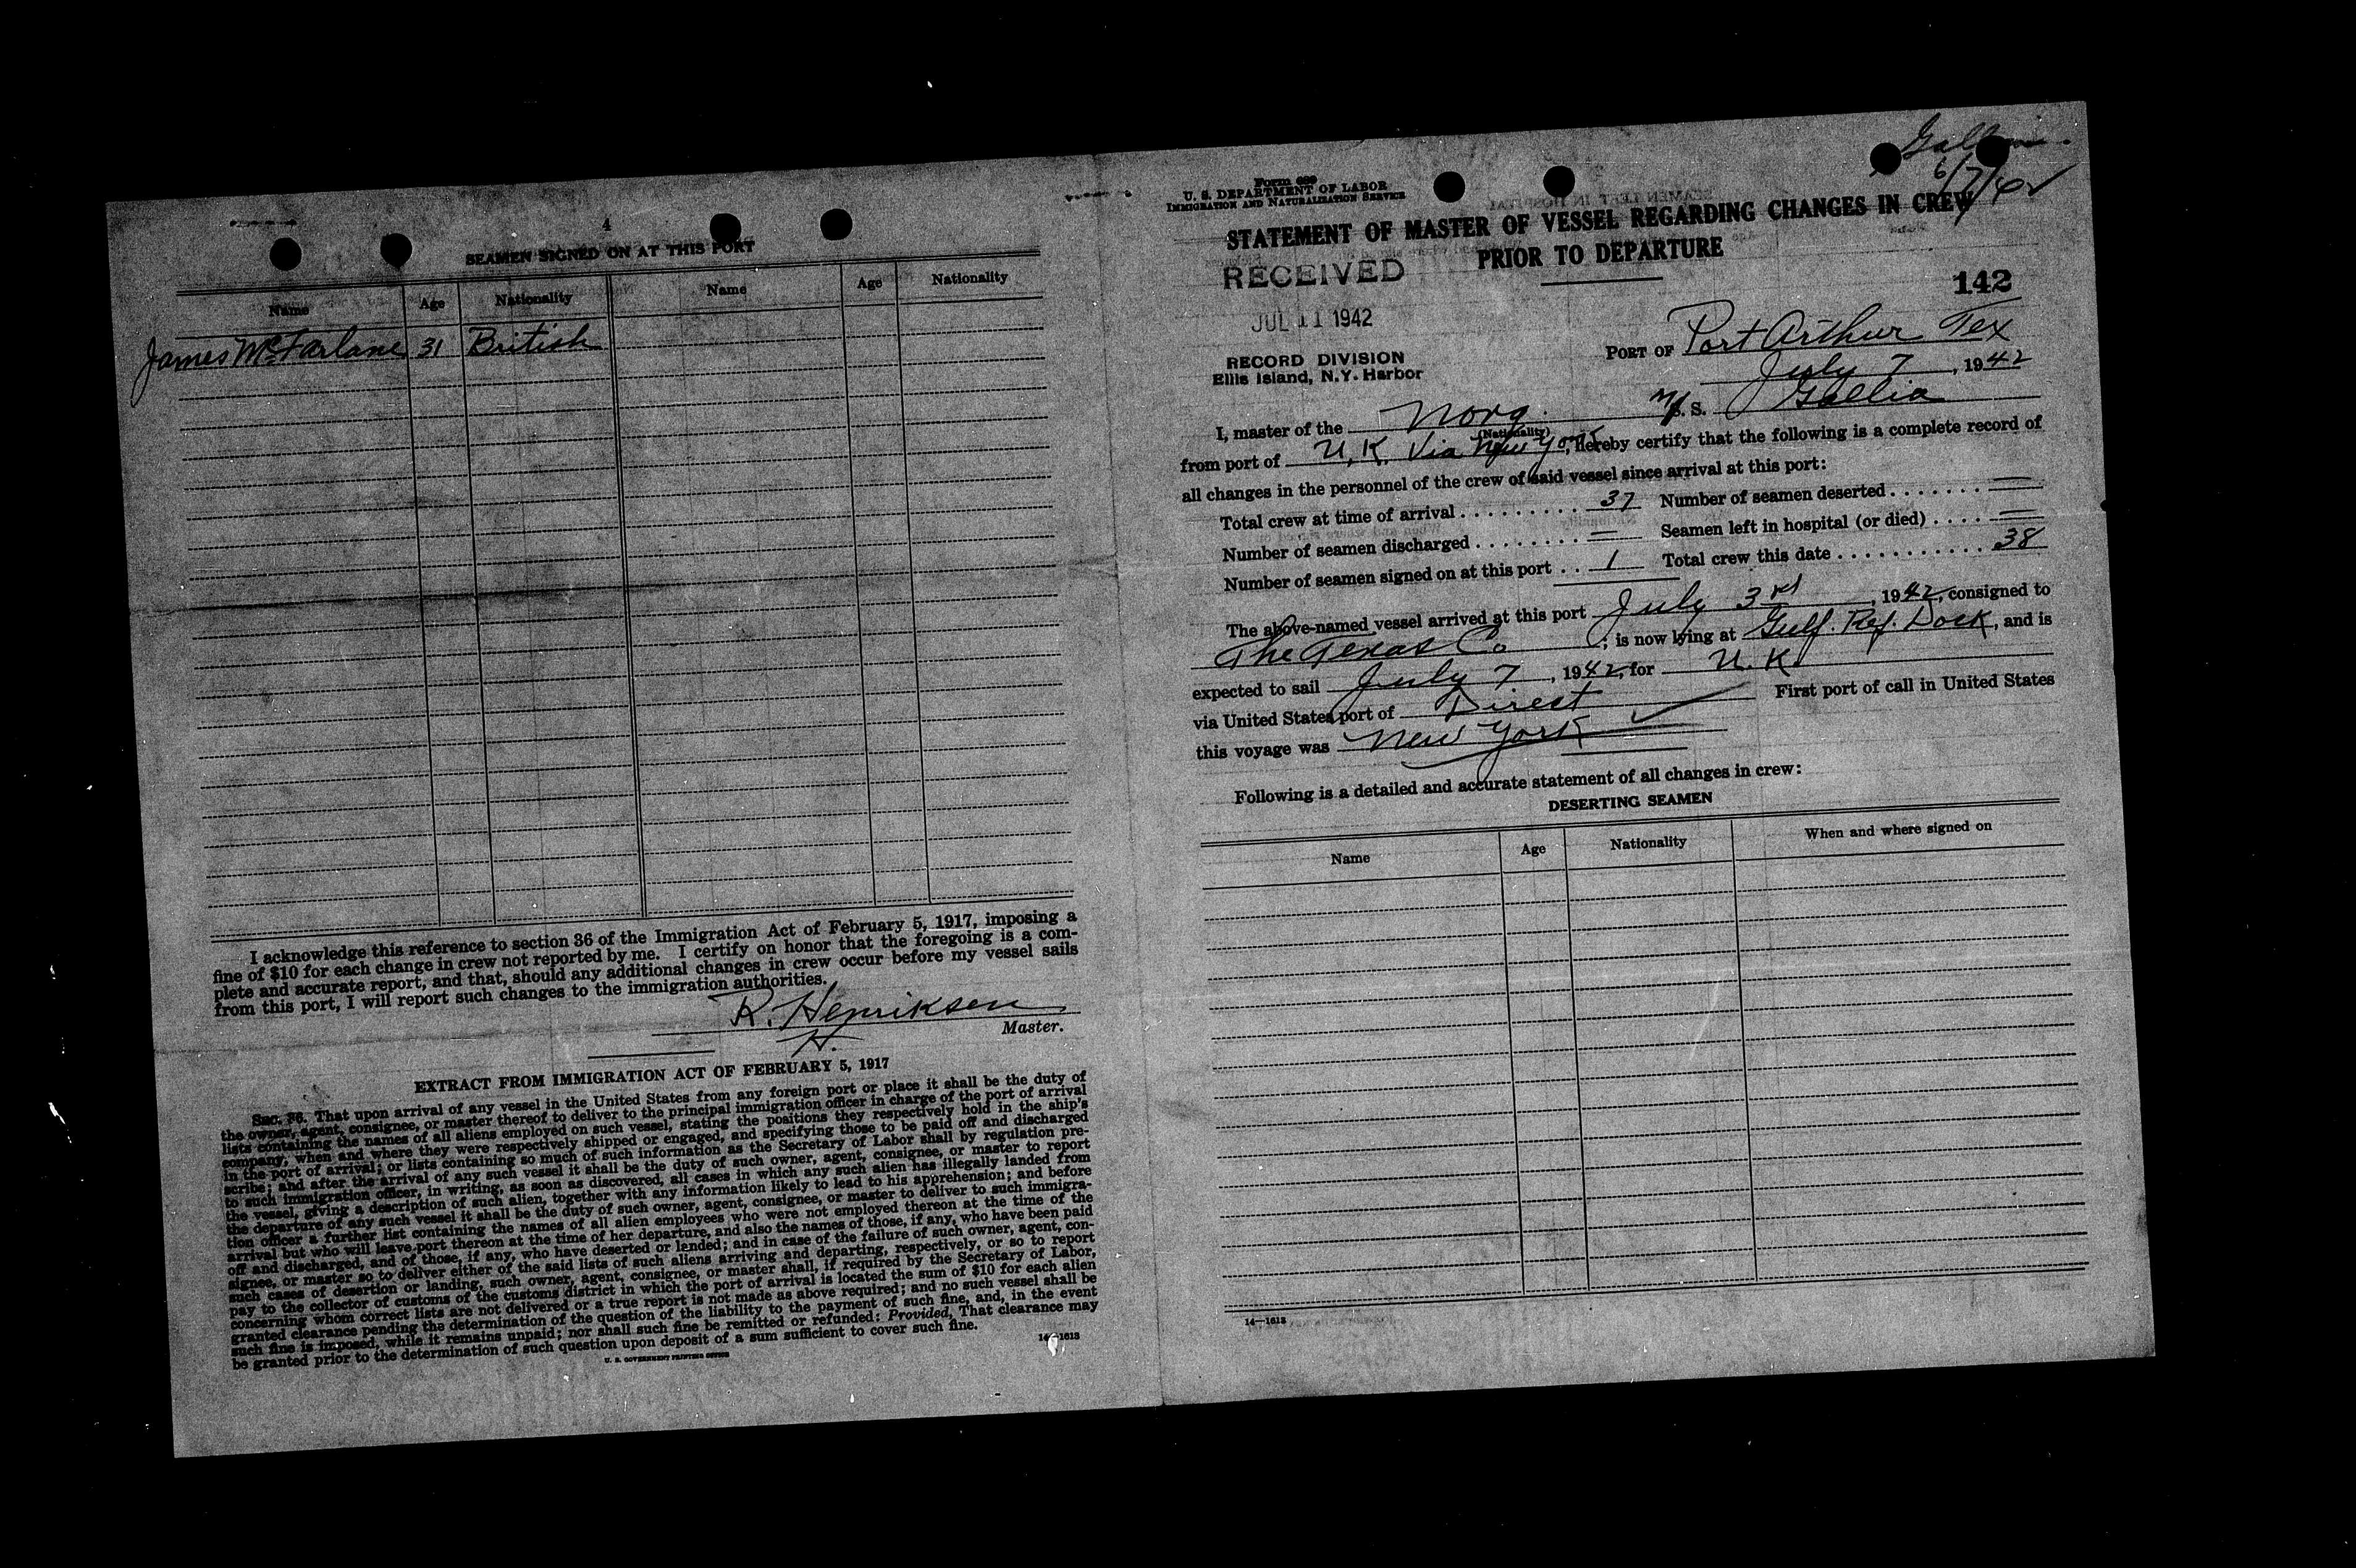 4
SEAMEN SIGNED ON AT THIS PORT
Name Age Nationality Name Age Nationality
James McFarlane 31 British
I acknowledge this reference to section 36 of the Immigration Act of February 5, 1917, imposing a
fine of $10 for each change in crew not reported by me. I certify on honor that the foregoing is a com-
plete and accurate report, and that, should any additional changes in crew occur before my vessel sails
from this port, I will report such changes to the immigration authorities.
R. Henriksen
H.
Master.
EXTRACT FROM IMMIGRATION ACT OF FEBRUARY 5, 1917
SEC. 36. That upon arrival of any vessel in the United States from any foreign port or place it shall be the duty of
the owner, agent, consignee, or master thereof to deliver to the principal immigration officer in charge of the port of arrival
lists containing the names of all aliens employed on such vessel, stating the positions they respectively hold in the ship's
company, when and where they were respectively shipped or engaged, and specifying those to be paid off and discharged
in the port of arrival; or lists containing so much of such information as the Secretary of Labor shall by regulation pre-
scribe; and after the arrival of any such vessel it shall be the duty of such owner, agent, consignee, or master to report
to such immigration officer, in writing, as soon as discovered, all cases in which any such alien has illegally landed from
the vessel, giving a description of such alien, together with any information likely to lead to his apprehension; and before
the departure of any such vessel it shall be the duty of such owner, agent, consignee, or master to deliver to such immigra-
tion officer a further list containing the names of all alien employees who were not employed thereon at the time of the
arrival but who will leave port thereon at the time of her departure, and also the names of those, if any, who have been paid
off and discharged, and of those, if any, who have deserted or landed; and in case of the failure of such owner, agent, con-
signee, or master so to deliver either of the said lists of such aliens arriving and departing, respectively, or so to report
such cases of desertion or landing, such owner, agent, consignee, or master shall, if required by the Secretary of Labor,
pay to the collector of customs of the customs district in which the port of arrival is located the sum of $10 for each alien
concerning whom correct lists are not delivered or a true report is not made as above required; and no such vessel shall be
granted clearance pending the determination of the question of the liability to the payment of such fine, and, in the event
such fine is imposed, while it remains unpaid; nor shall such fine be remitted or refunded: Provided, That clearance may
be granted prior to the determination of such question upon deposit of a sum sufficient to cover such fine.
U. S. GOVERNMENT PRINTING OFFICE 14—1613
6/7/42
Form 689
U. S. DEPARTMENT OF LABOR
IMMIGRATION AND NATURALIZATION SERVICE
STATEMENT OF MASTER OF VESSEL REGARDING CHANGES IN CREW
PRIOR TO DEPARTURE
RECEIVED
JUL 11 1942
RECORD DIVISION
Ellis Island, N.Y. Harbor
142
PORT OF Port Arthur Tex
July 7, 1942
I, master of the Norg. M/S. S. Gallia
(Nationality)
from port of U.K. Via New York, hereby certify that the following is a complete record of
all changes in the personnel of the crew of said vessel since arrival at this port:
Total crew at time of arrival . . . . . . . . . 37 Number of seamen deserted . . . . . . . —
Number of seamen discharged . . . . . . . . — Seamen left in hospital (or died) . . . . —
Number of seamen signed on at this port . . 1 Total crew this date . . . . . . . . . . . . 38
The above-named vessel arrived at this port July 3rd, 1942, consigned to
The Texas Co.; is now lying at Gulf. Ref. Dock, and is
expected to sail July 7, 1942, for U.K.
via United States port of Direct First port of call in United States
this voyage was New York
Following is a detailed and accurate statement of all changes in crew:
DESERTING SEAMEN
Name Age Nationality When and where signed on
14—1613